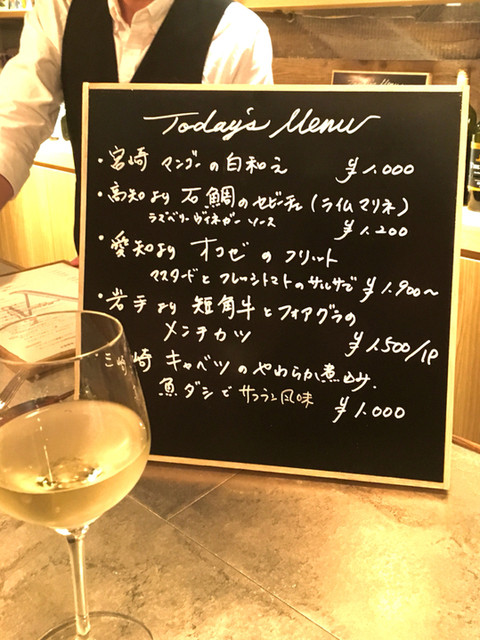 Today's Menu
・宮崎 マンゴーの白和え ¥1.000
・高知より 石鯛のセビーチェ(ライムマリネ)
ラズベリーヴィネガーソース ¥1.200
・愛知より オコゼのフリット
マスタードとフレッシュトマトのサルサで ¥1.900〜
・岩手より 短角牛とフォアグラの
メンチカツ ¥1.500/1P
三崎 キャベツのやわらか煮込み.
魚ダシで サフラン風味 ¥1.000